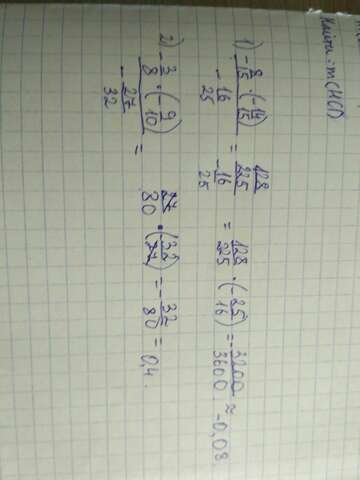 Хайти: m(HCD)
1) (-8/15 · (-14/15)) / (-16/25) = (128/225) / (-16/25) = 128/225 · (-25/16) = -3200/3600 ≈ -0,08.
2) (-3/8 · (-9/10)) / (-27/32) = 27/80 · (-32/27) = -32/80 = 0,4.